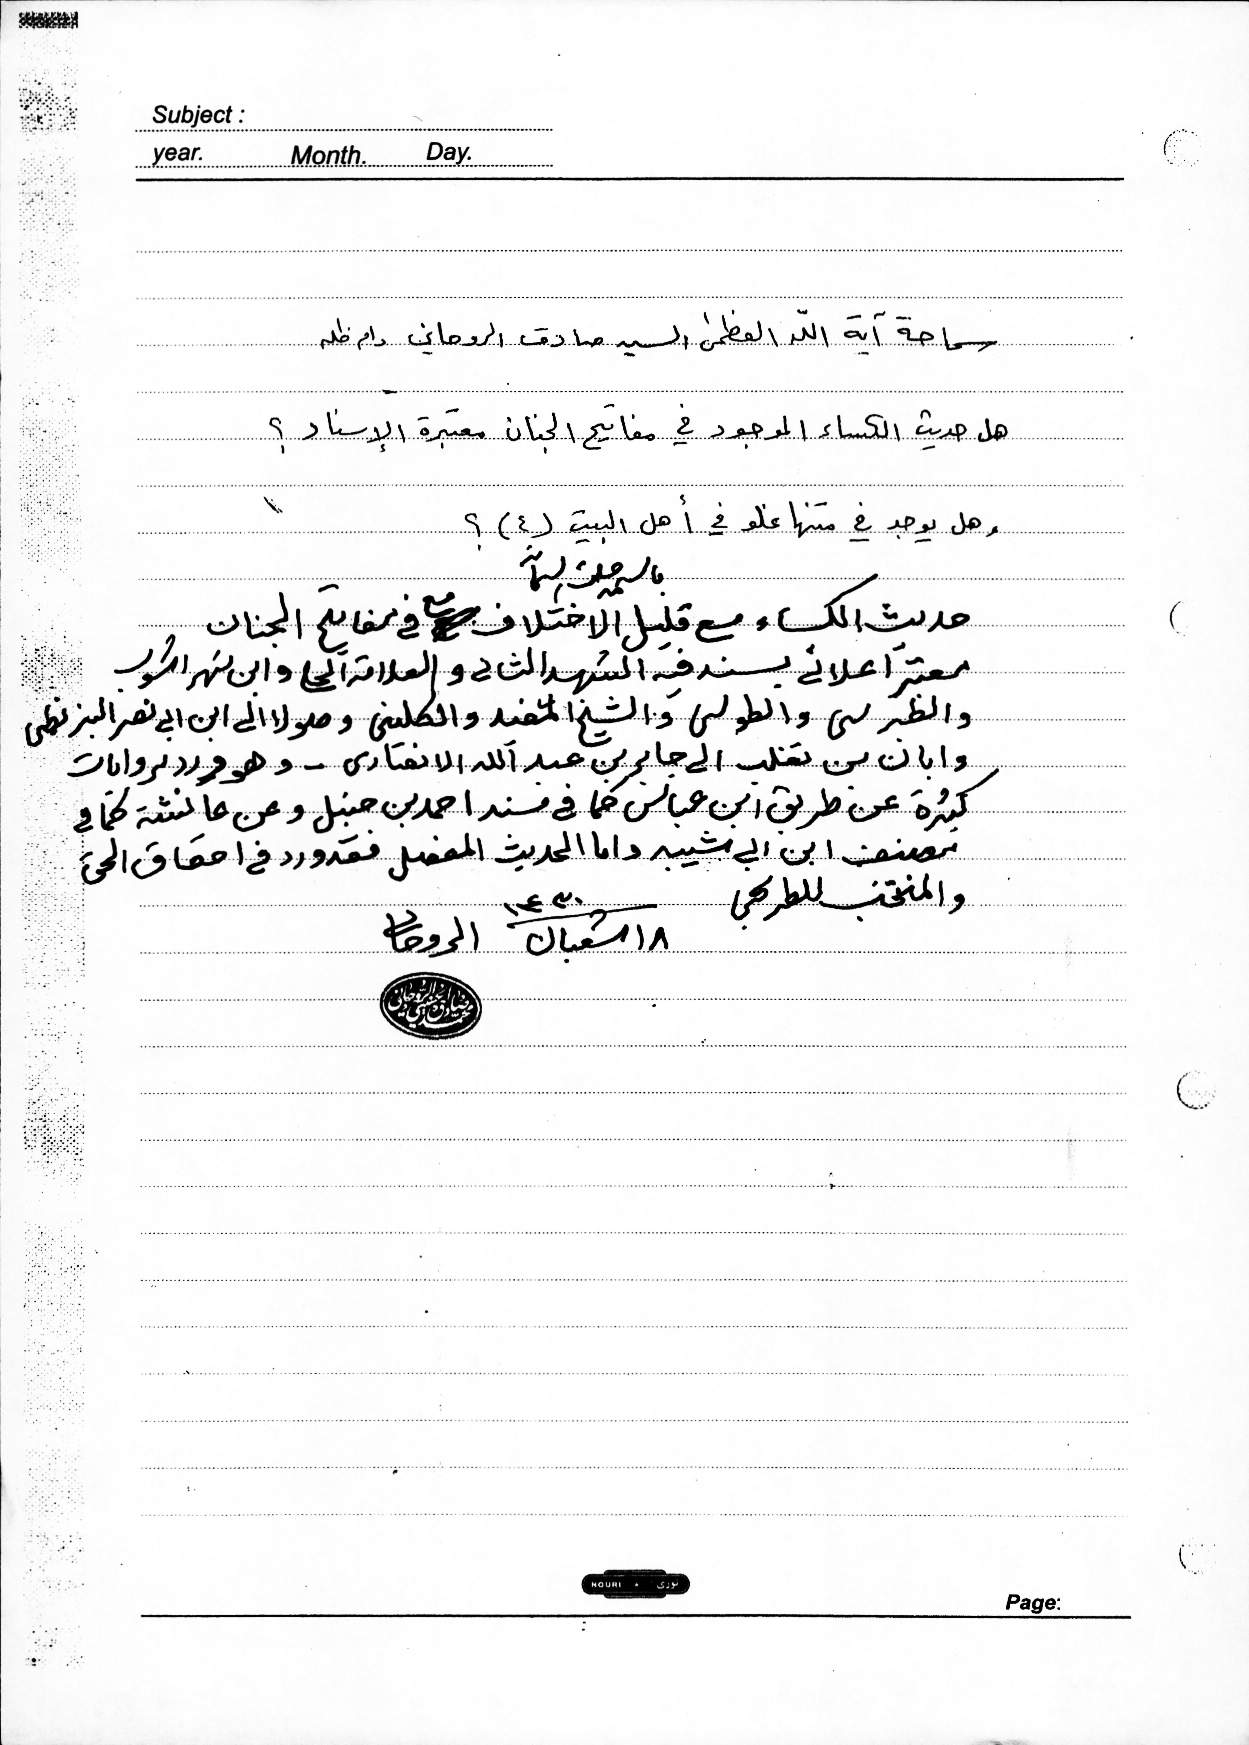 Subject :
year. Month. Day.
سماحة آية الله العظمىٰ السيد صادق الروحاني دام ظله
هل حديث الكساء الموجود في مفاتيح الجنان معتبرة الإسناد ؟
وهل يوجد في متنها غلو في أهل البيت (ع) ؟
حديث الكساء مع قليل الاختلاف في مفاتيح الجنان
معتبر اعلائي بسند فيه الشهيد الثاني والعلامة الحلي وابن شهر اشوب
والطبرسي والطوسي والشيخ المفيد والكليني وصولا الى ابن ابي نصر البزنطي
وابان بن تغلب الى جابر بن عبد الله الانصاري - وهو ورد بروايات
كثيرة عن طريق ابن عباس كما في مسند احمد بن حنبل وعن عائشة كما في
مصنف ابن ابي شيبه واما الحديث المفصل فقد ورد في احقاق الحق
والمنتخب للطريحي
١٨ شعبان ١٤٣٠ الروحاني
NOURI نوری
Page: